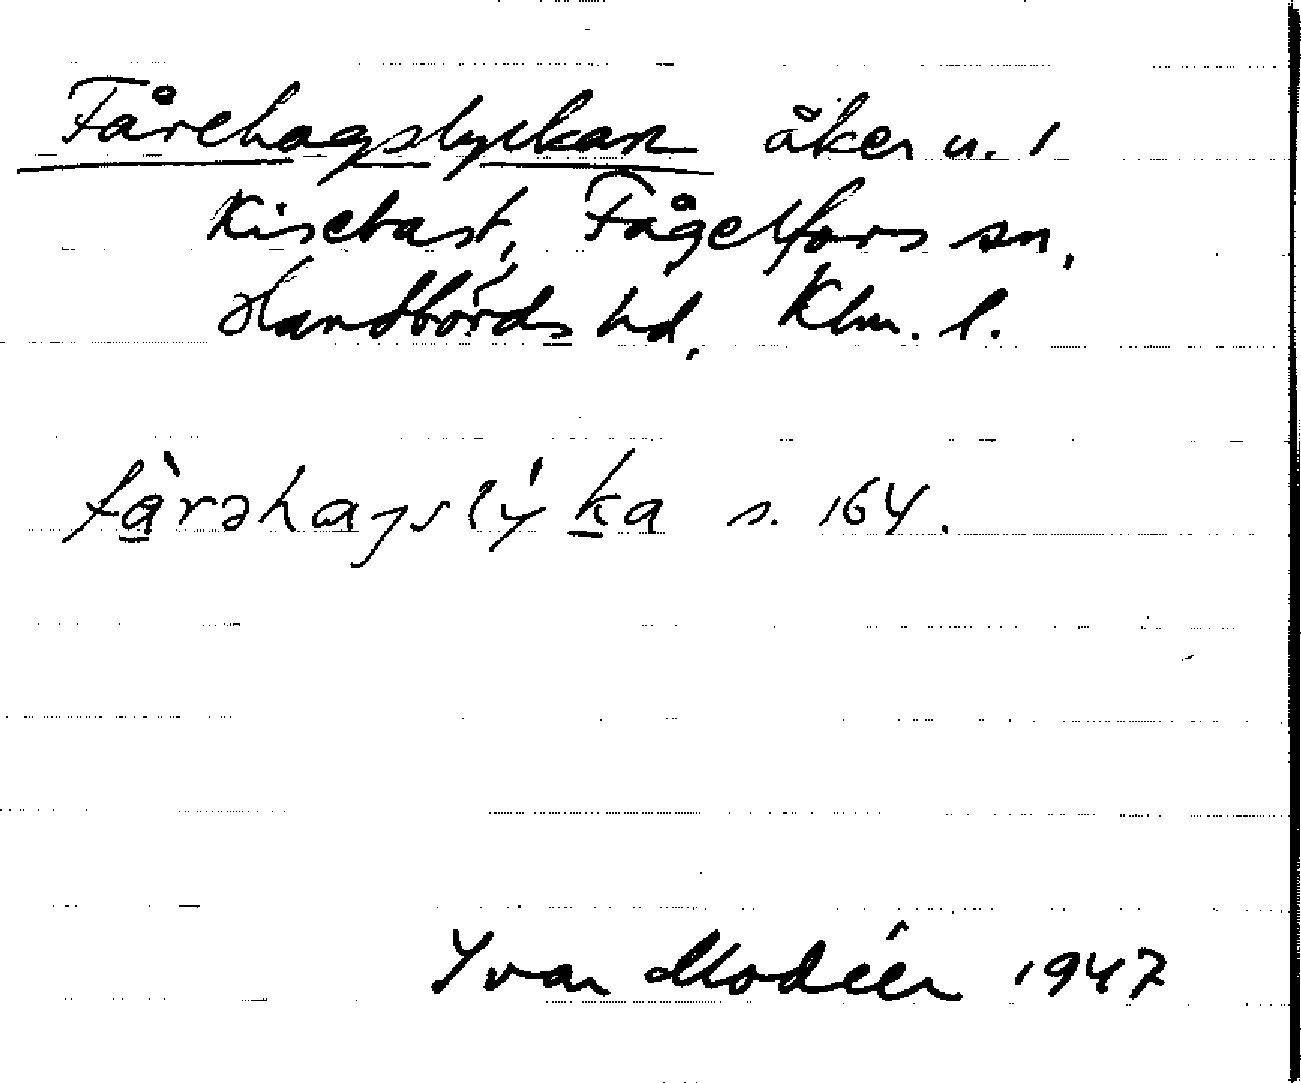 Fårehagslyckan åker u. 1
Kisebast, Fågelfors sn,
Handbörds hd, Klm. l.
fàrəhagslý ka s. 164.
Ivar Modéer 1947